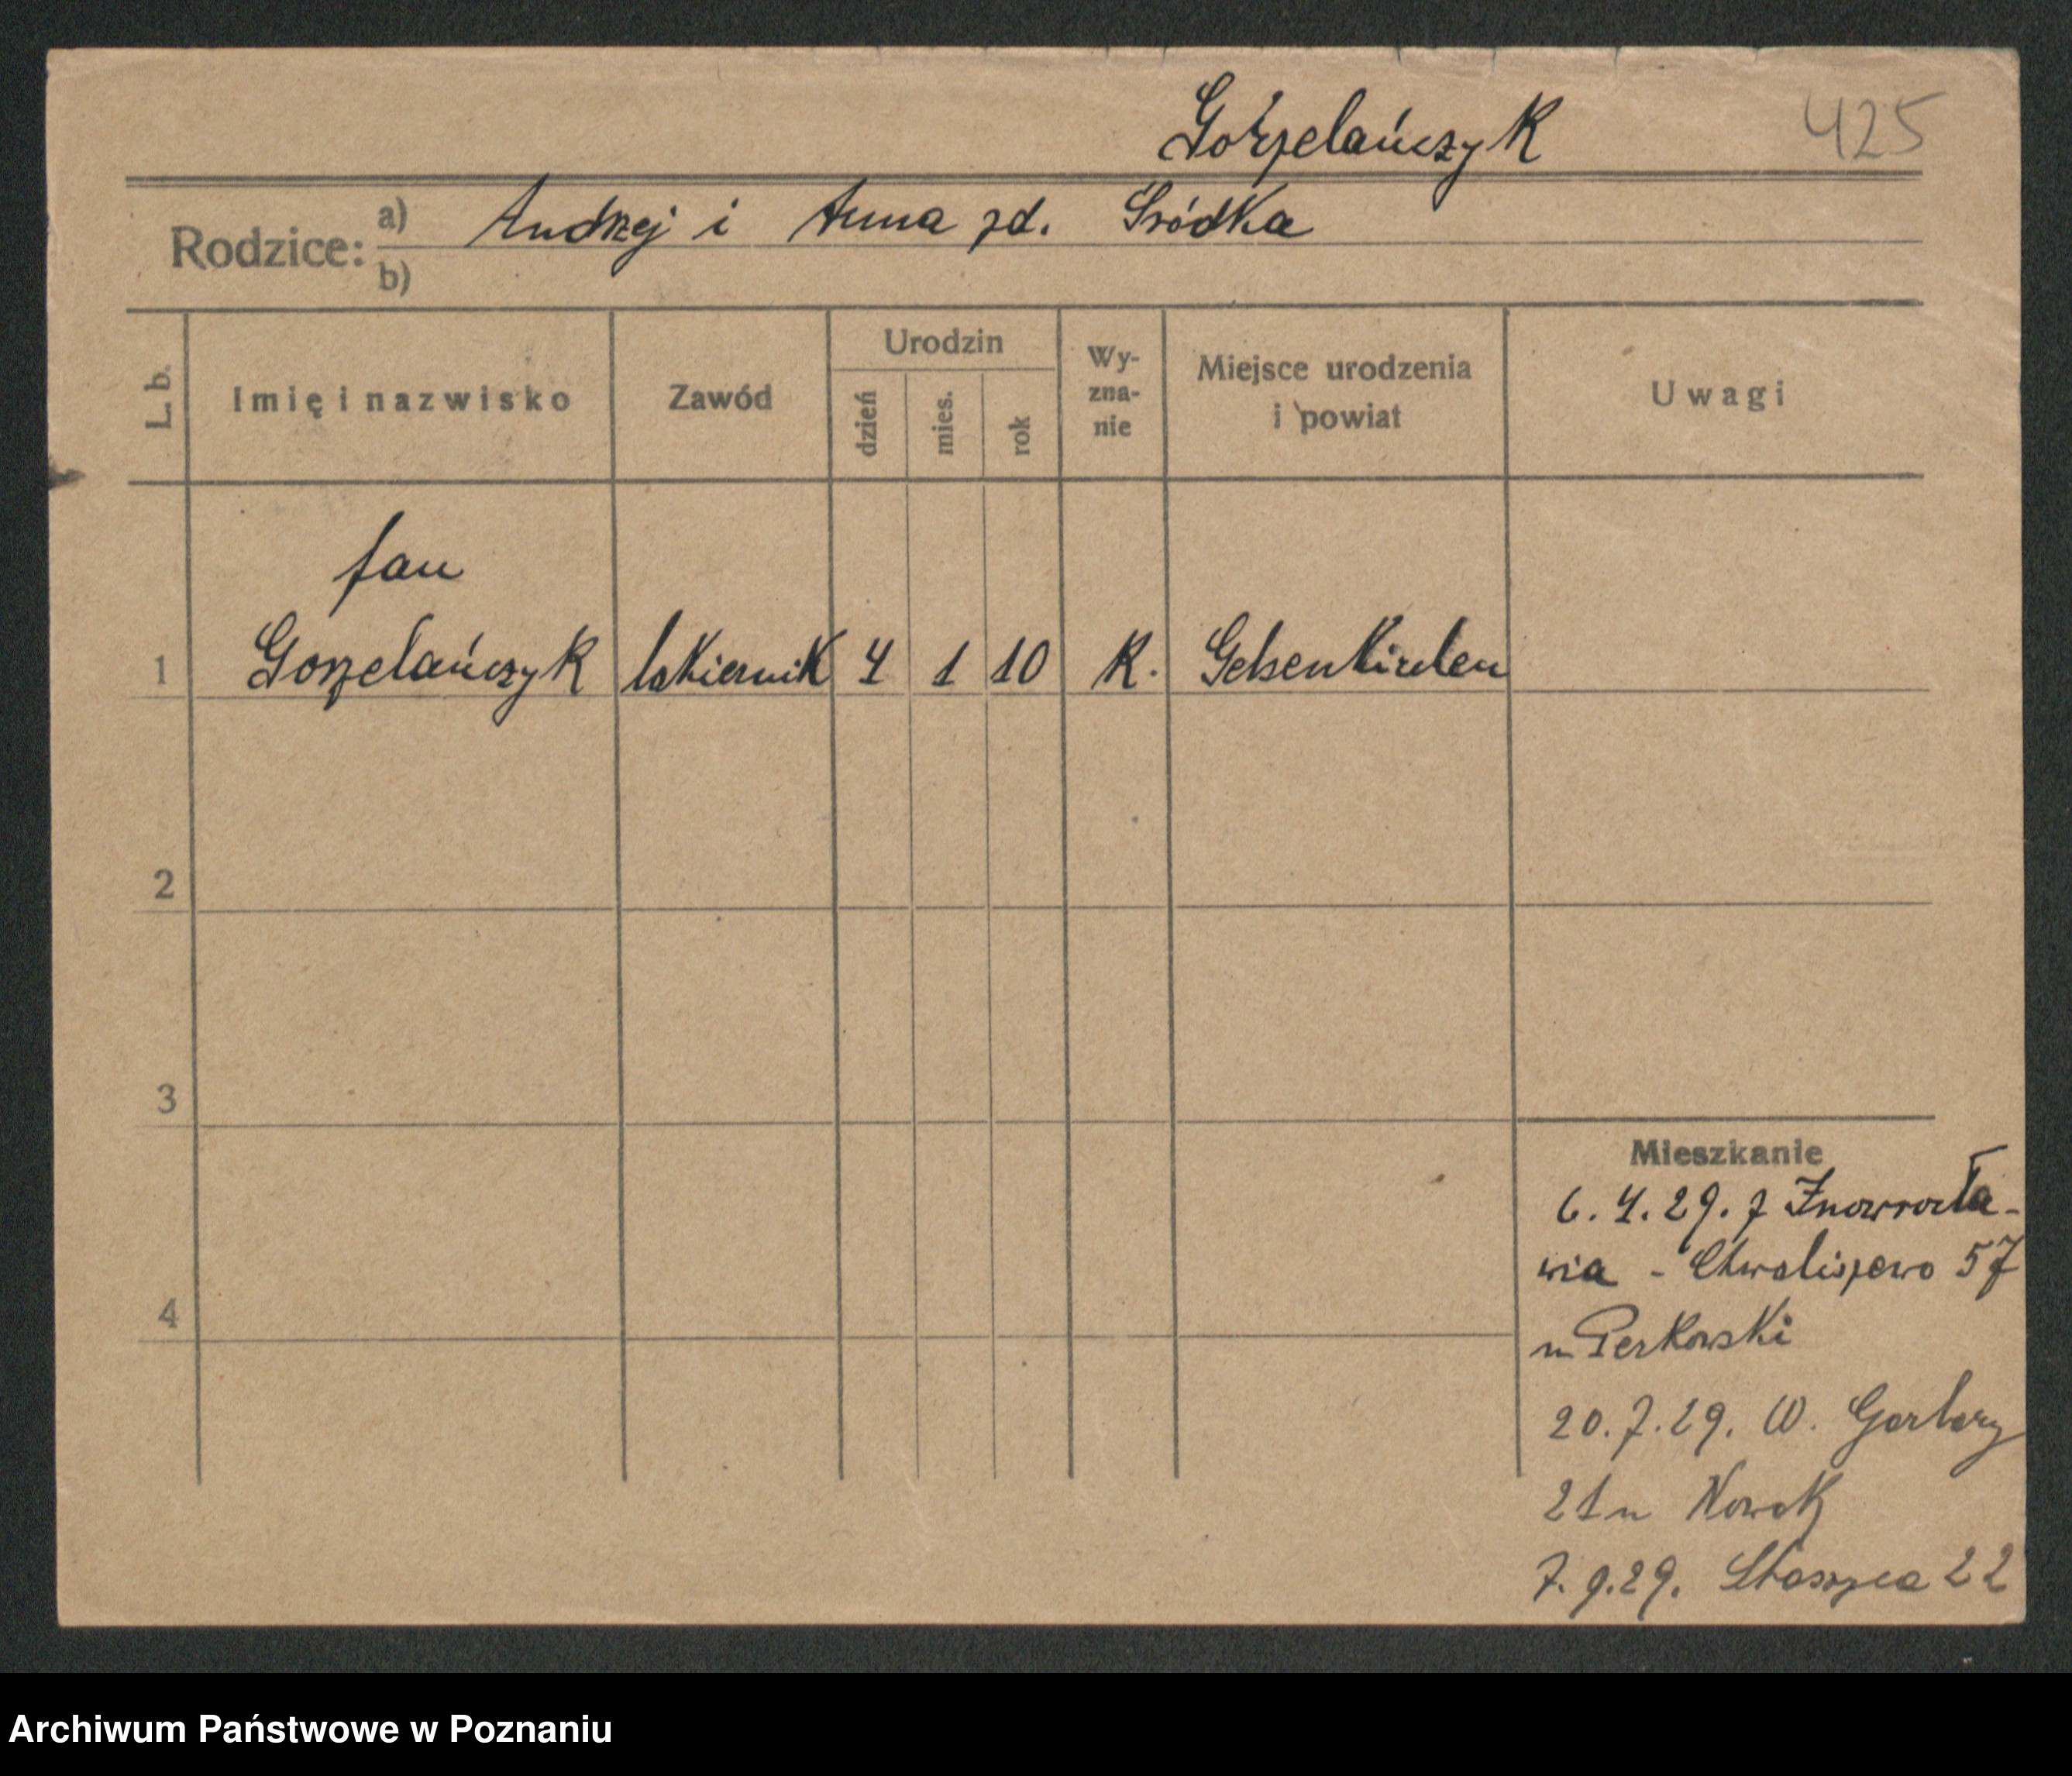 Gorzelańczyk
425
Rodzice: a) Andrzej i Anna zd. Śródka
b)
L. b.
Imię i nazwisko
Zawód
Urodzin
dzień
mies.
rok
Wy-
zna-
nie
Miejsce urodzenia
i powiat
Uwagi
Jan
1 Gorzelańczyk lakiernik 4 1 10 K. Gelsenkirchen
2
3
4
Mieszkanie
6.4.29. z Inowrocła-
wia - Chwaliszewo 57
u Perkowski
20.7.29. W. Garbary
21 u Nowak
7.9.29. Staszyca 22
Archiwum Państwowe w Poznaniu